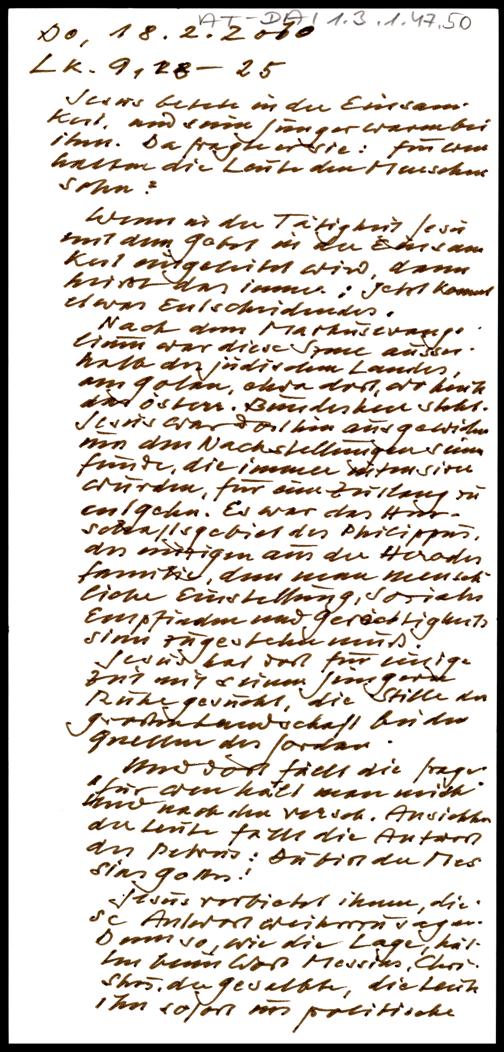 AT-DAI 1.3.1.47.50
Do, 18.2.2010
Lk. 9, 18 – 25
Jesus betete in der Einsam-
keit, und seine Jünger waren bei
ihm. Da fragte er sie: Für wen
halten die Leute den Menschen
sohn?
Wenn in der Tätigkeit Jesu
mit dem Gebet in der Einsam
keit eingeleitet wird, dann
heisst das immer: jetzt kommt
etwas Entscheidendes.
Nach dem Markusevange-
lium war diese Szene ausser-
halb des jüdischen Landes,
am Golan, etwa dort, wo heute
das österr. Bundesheer steht.
Jesus war dorthin ausgewichen
um den Nachstellungen seiner
Feinde, die immer intensiver
wurden, für eine Zeitlang zu
entgehn. Es war das Herr-
schaftsgebiet des Philippus,
des einzigen aus der Herodes
familie, dem man mensch-
liche Einstellung, soziales
Empfinden und Gerechtigkeits
sinn zugestehn muß.
Jesus hat dort für einige
Zeit mit seinen Jüngern
Ruhe gesucht, die Stille der
Landschaft bei den
Quellen des Jordan.
Und dort fällt die Frage
"Für wen hält man mich"
Und nach den versch. Ansichten
der Leute fällt die Antwort
des Petrus: Du bist der Mes
sias Gottes!
Jesus verbietet ihnen, die-
se Antwort weiterzusagen.
Denn so, wie die Lage, hät-
ten beim Wort Messias, Chri-
stus, der Gesalbte, die Leute
ihn sofort ins politische